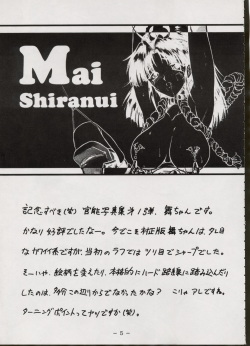 Mai
Shiranui
記念すべき(笑) 官能写真集オ1弾、舞ちゃんです。
かなり好評でしたなー。今でこそ対正版舞ちゃんは、タレ目
なカワイイ系ですが、当初のラフではツリ目でシャープでした。
ミーいや、絵柄も変えたり、本格的にハード路線に踏み込んだり
したのは、多分この辺りからでなかったかな? こりゃアレですね。
ターニングポイントってヤツですか(笑)。
- 5 -